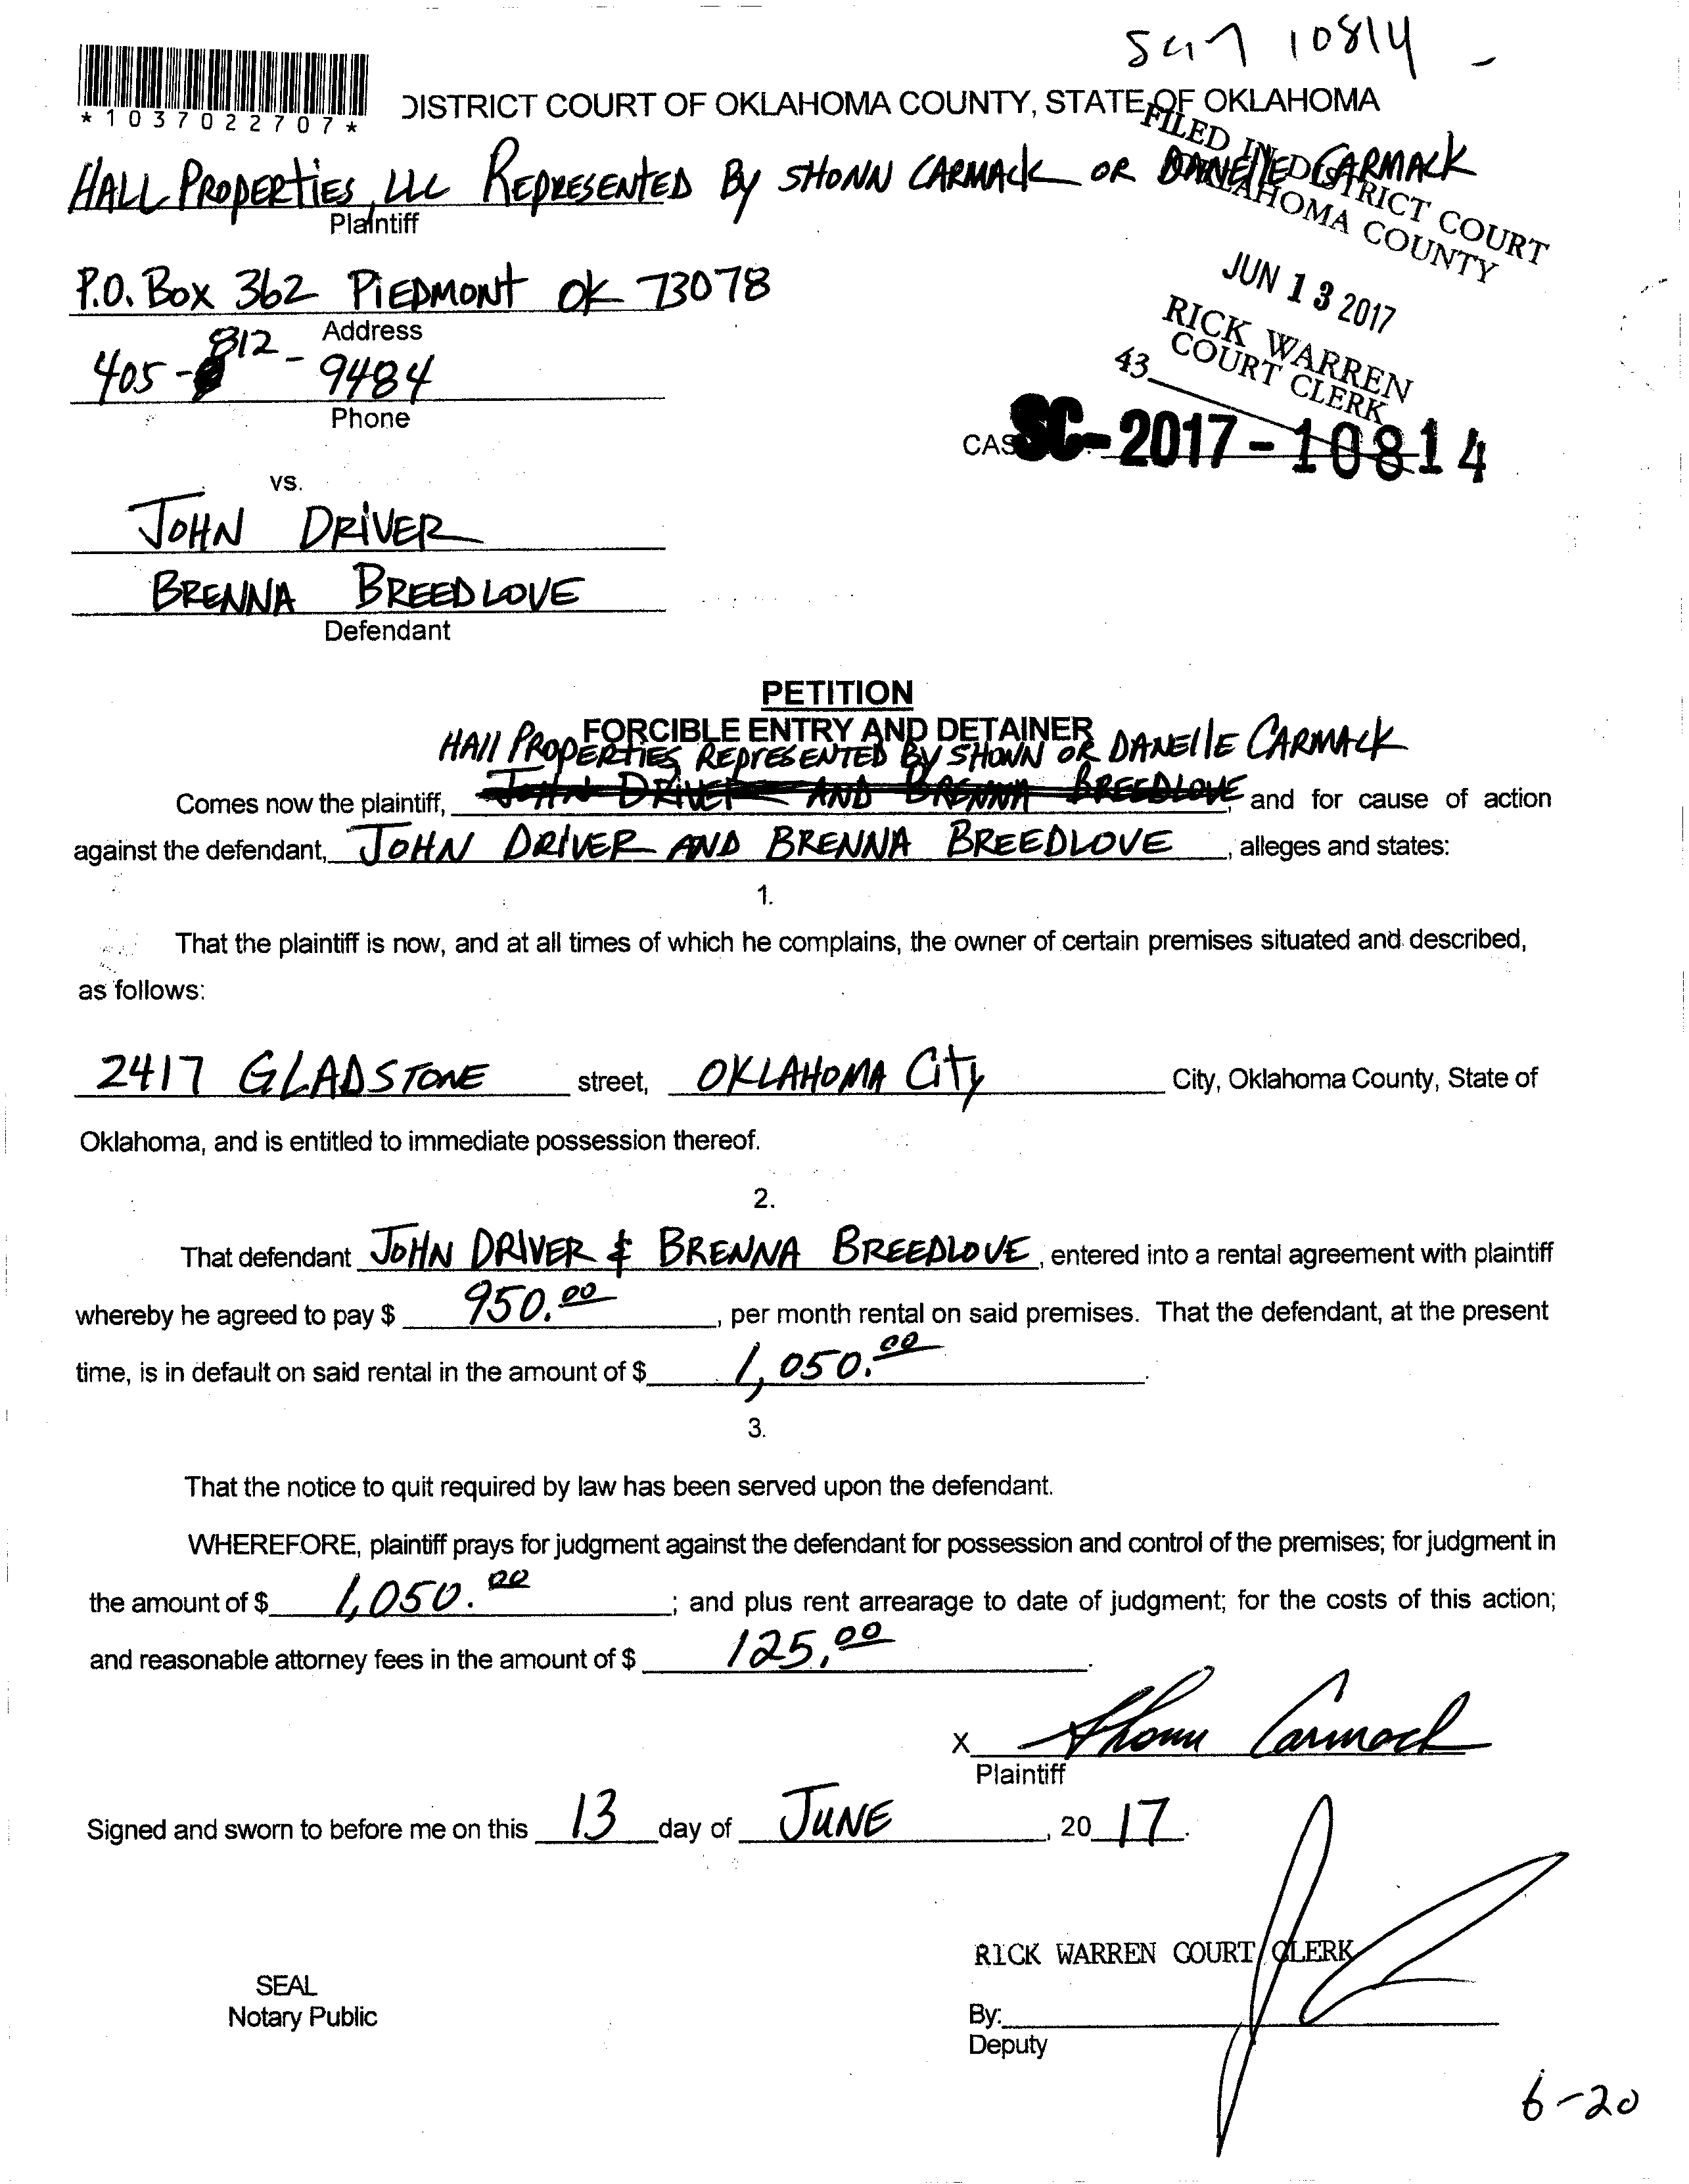 10814
*1037022707*
DISTRICT COURT OF OKLAHOMA COUNTY, STATE OF OKLAHOMA
HALL PROPERTIES, LLC REPRESENTED By SHONN CARMACK OR DANELLE CARMACK
Plaintiff
FILED IN DISTRICT COURT
OKLAHOMA COUNTY
P.O. BOX 362 PIEDMONT OK 73078
Address
JUN 13 2017
405-812-9484
Phone
RICK WARREN
COURT CLERK
43
CAS SC-2017-10814
vs.
JOHN DRIVER
BRENNA BREEDLOVE
Defendant
PETITION
FORCIBLE ENTRY AND DETAINER
HALL PROPERTIES REPRESENTED BY SHONN OR DANELLE CARMACK
Comes now the plaintiff, JOHN DRIVER AND BRENNA BREEDLOVE, and for cause of action
against the defendant, JOHN DRIVER AND BRENNA BREEDLOVE, alleges and states:
1.
That the plaintiff is now, and at all times of which he complains, the owner of certain premises situated and described,
as follows:
2417 GLADSTONE street, OKLAHOMA CITY City, Oklahoma County, State of
Oklahoma, and is entitled to immediate possession thereof.
2.
That defendant JOHN DRIVER & BRENNA BREEDLOVE, entered into a rental agreement with plaintiff
whereby he agreed to pay $ 950.00, per month rental on said premises. That the defendant, at the present
time, is in default on said rental in the amount of $ 1,050.00.
3.
That the notice to quit required by law has been served upon the defendant.
WHEREFORE, plaintiff prays for judgment against the defendant for possession and control of the premises; for judgment in
the amount of $ 1,050.00; and plus rent arrearage to date of judgment; for the costs of this action;
and reasonable attorney fees in the amount of $ 125.00.
X Shonn Carmack
Plaintiff
Signed and sworn to before me on this 13 day of JUNE, 20 17.
RICK WARREN COURT CLERK
SEAL
Notary Public
By:
Deputy
6-20